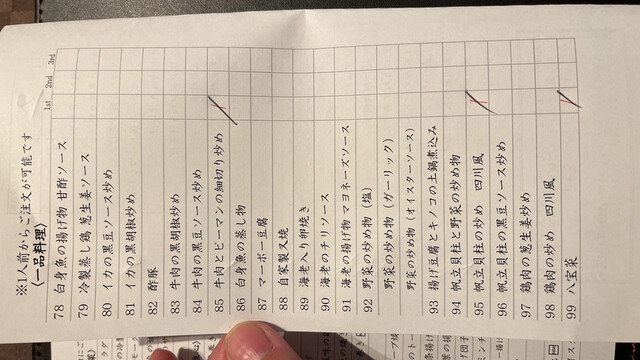 ※1人前からご注文が可能です
〈一品料理〉
1st 2nd 3rd
78 白身魚の揚げ物 甘酢ソース
79 冷製蒸し鶏 葱生姜ソース
80 イカの黒豆ソース炒め
81 イカの黒胡椒炒め
82 酢豚
83 牛肉の黒胡椒炒め
84 牛肉の黒豆ソース炒め
85 牛肉とピーマンの細切り炒め
86 白身魚の蒸し物
87 マーボー豆腐
88 自家製叉焼
89 海老入り卵焼き
90 海老のチリソース
91 海老の揚げ物 マヨネーズソース
92 野菜の炒め物（塩）
野菜の炒め物（ガーリック）
野菜の炒め物（オイスターソース）
93 揚げ豆腐とキノコの土鍋煮込み
94 帆立貝柱と野菜の炒め物
95 帆立貝柱の炒め 四川風
96 帆立貝柱の黒豆ソース炒め
97 鶏肉の葱生姜炒め
98 鶏肉の炒め 四川風
99 八宝菜